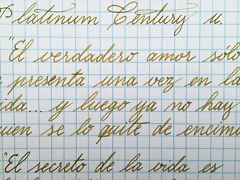 Platinum Century u.
"El verdadero amor sólo
presenta una vez en la
ida... y luego ya no hay
uien se lo quite de encima
"El secreto de la vida es